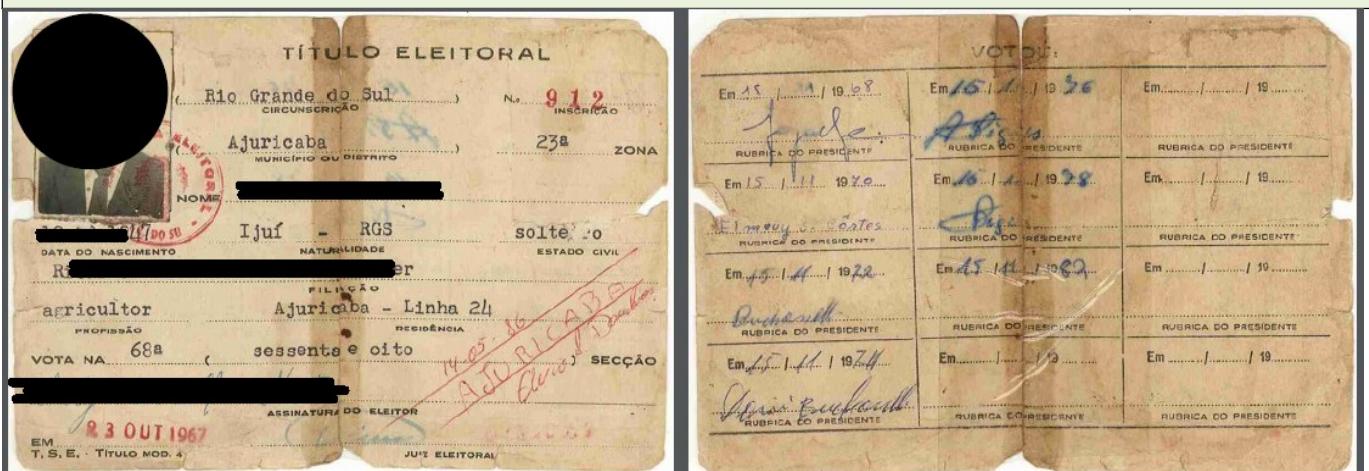 TÍTULO ELEITORAL
( Rio Grande do Sul ) N.o 912
CIRCUNSCRIÇÃO INSCRIÇÃO
( Ajuricaba ) 23ª ZONA
MUNICÍPIO OU DISTRITO
NOME
Ijuí - RGS solteiro
DATA DO NASCIMENTO NATURALIDADE ESTADO CIVIL
FILIAÇÃO
agricultor Ajuricaba - Linha 24
PROFISSÃO RESIDÊNCIA
VOTA NA 68ª ( sessenta e oito ) SECÇÃO
14-05-86
AJURICABA
ASSINATURA DO ELEITOR
EM 23 OUT 1967
T. S. E. - TÍTULO MOD. 4 JUIZ ELEITORAL
VOTOU:
Em 15 / 11 / 1968 Em 15 / 11 / 1976 Em / / 19
RUBRICA DO PRESIDENTE RUBRICA DO PRESIDENTE RUBRICA DO PRESIDENTE
Em 15 / 11 1970 Em 15 / 11 / 1978 Em / / 19
RUBRICA DO PRESIDENTE RUBRICA DO PRESIDENTE RUBRICA DO PRESIDENTE
Em 15 / 11 / 1972 Em 15 / 11 / 1982 Em / / 19
RUBRICA DO PRESIDENTE RUBRICA DO PRESIDENTE RUBRICA DO PRESIDENTE
Em 15 / 11 / 1974 Em / / 19 Em / / 19
RUBRICA DO PRESIDENTE RUBRICA DO PRESIDENTE RUBRICA DO PRESIDENTE